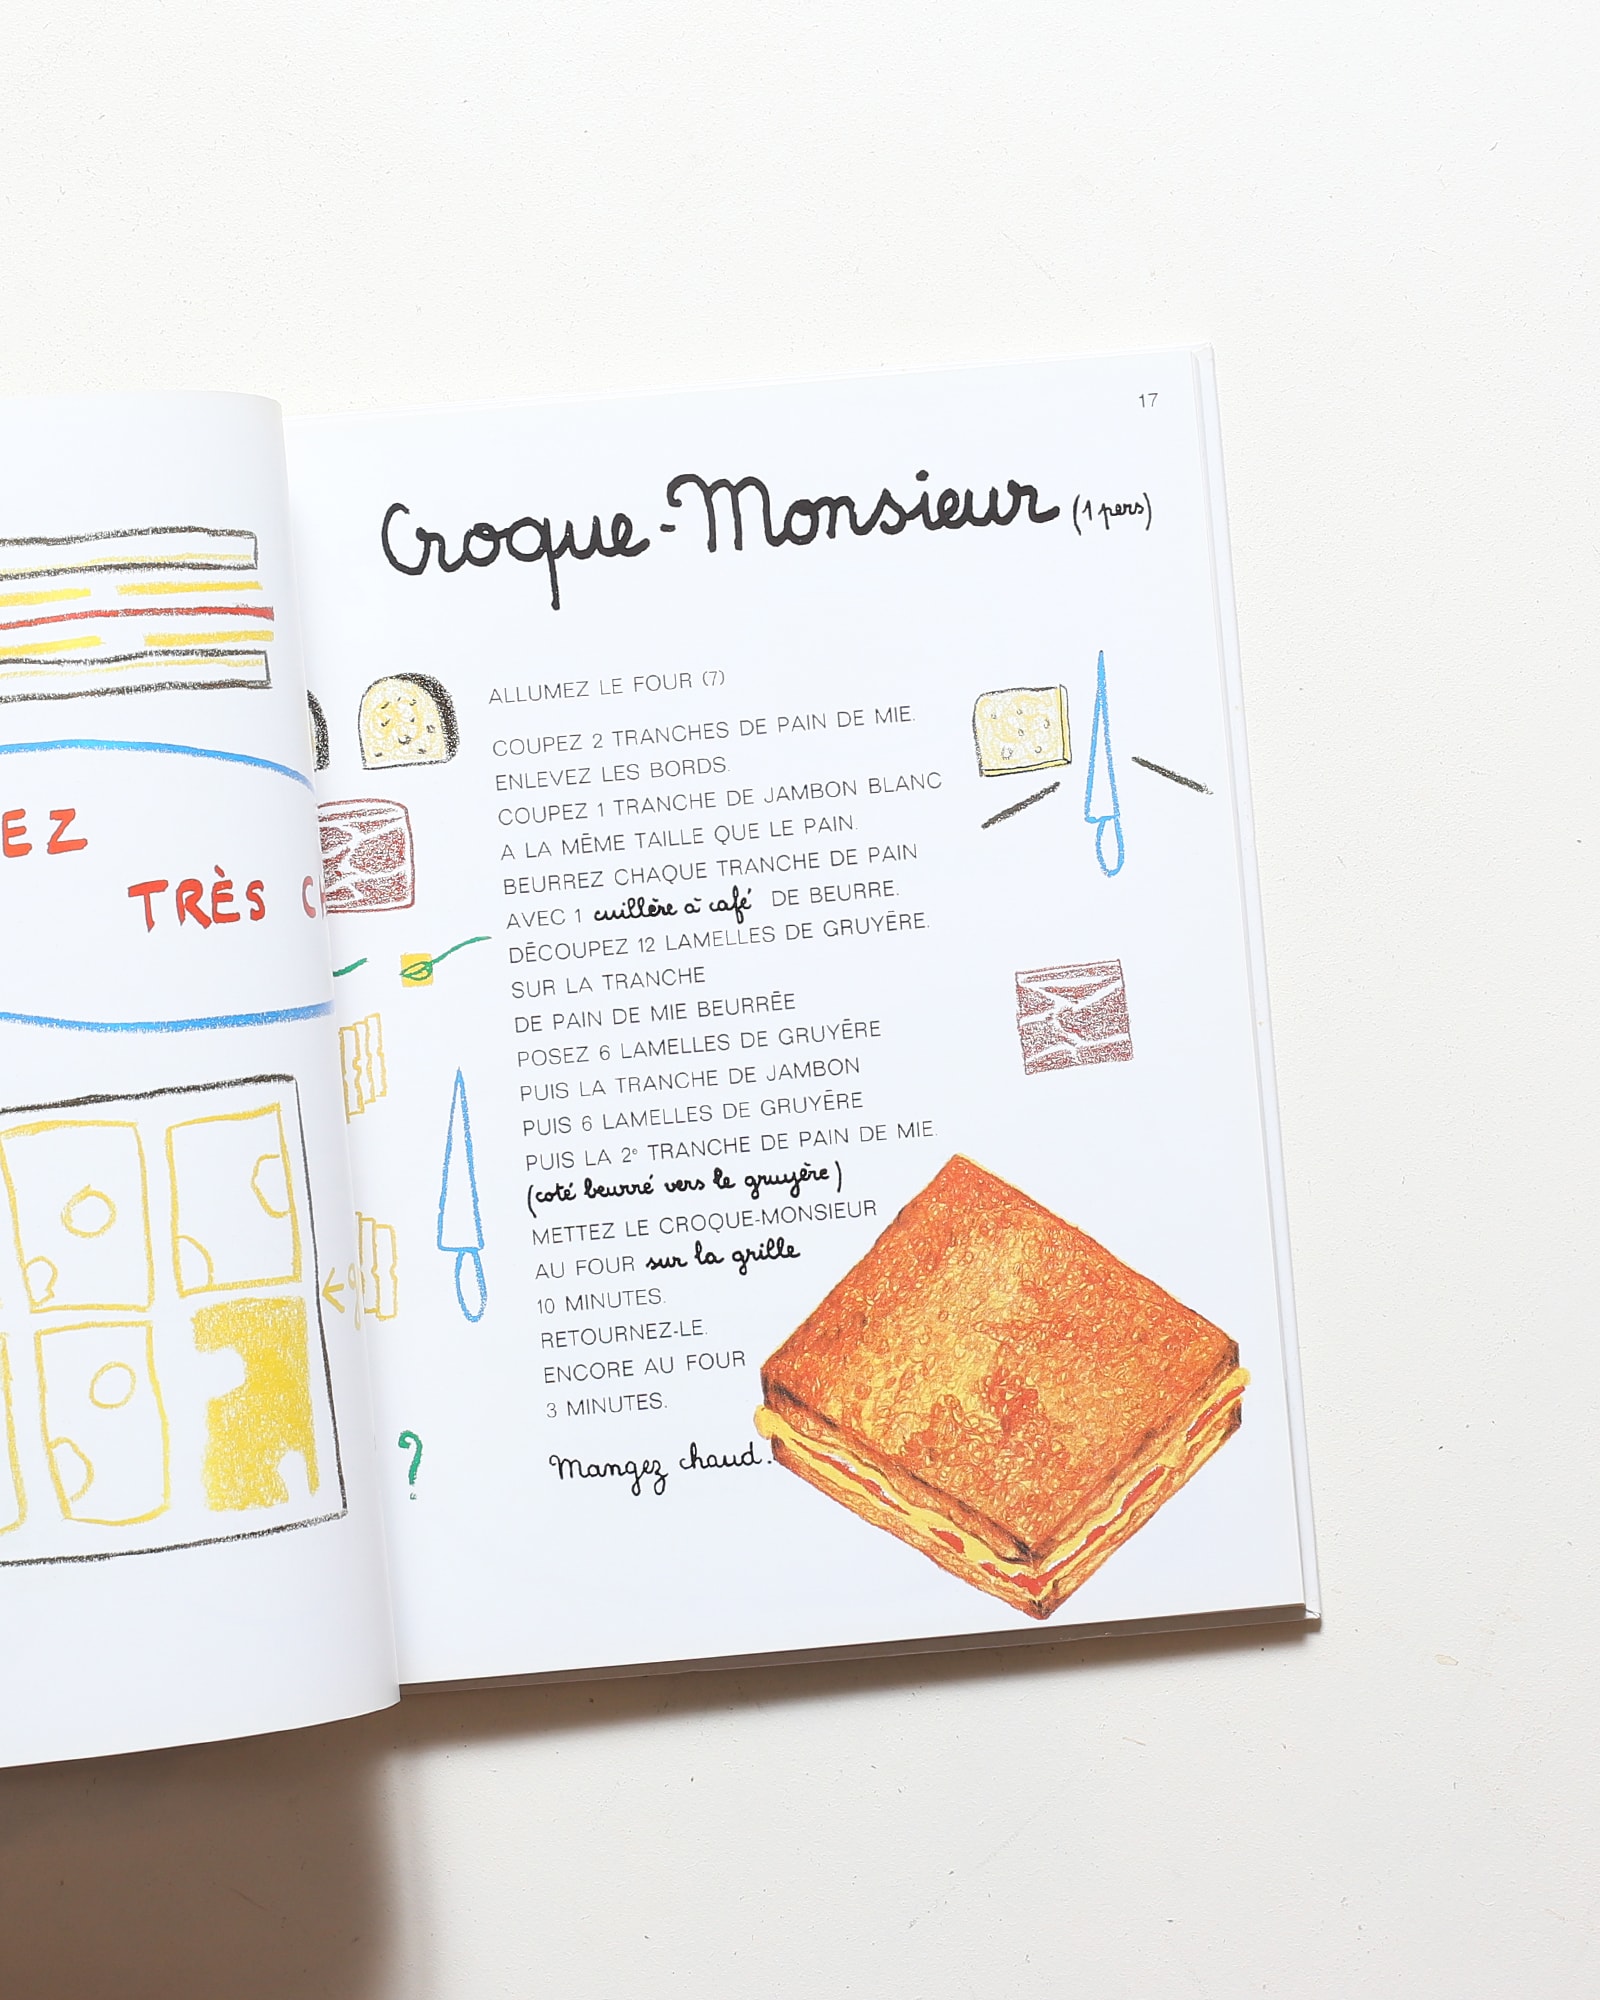 EZ
TRÈS
17
Croque-Monsieur (1 pers)
ALLUMEZ LE FOUR (7)
COUPEZ 2 TRANCHES DE PAIN DE MIE.
ENLEVEZ LES BORDS.
COUPEZ 1 TRANCHE DE JAMBON BLANC
A LA MÊME TAILLE QUE LE PAIN.
BEURREZ CHAQUE TRANCHE DE PAIN
AVEC 1 cuillère à café DE BEURRE.
DÉCOUPEZ 12 LAMELLES DE GRUYÈRE.
SUR LA TRANCHE
DE PAIN DE MIE BEURRÉE
POSEZ 6 LAMELLES DE GRUYÈRE
PUIS LA TRANCHE DE JAMBON
PUIS 6 LAMELLES DE GRUYÈRE
PUIS LA 2e TRANCHE DE PAIN DE MIE.
(coté beurré vers le gruyère)
METTEZ LE CROQUE-MONSIEUR
AU FOUR sur la grille
10 MINUTES.
RETOURNEZ-LE.
ENCORE AU FOUR
3 MINUTES.
?
Mangez chaud.